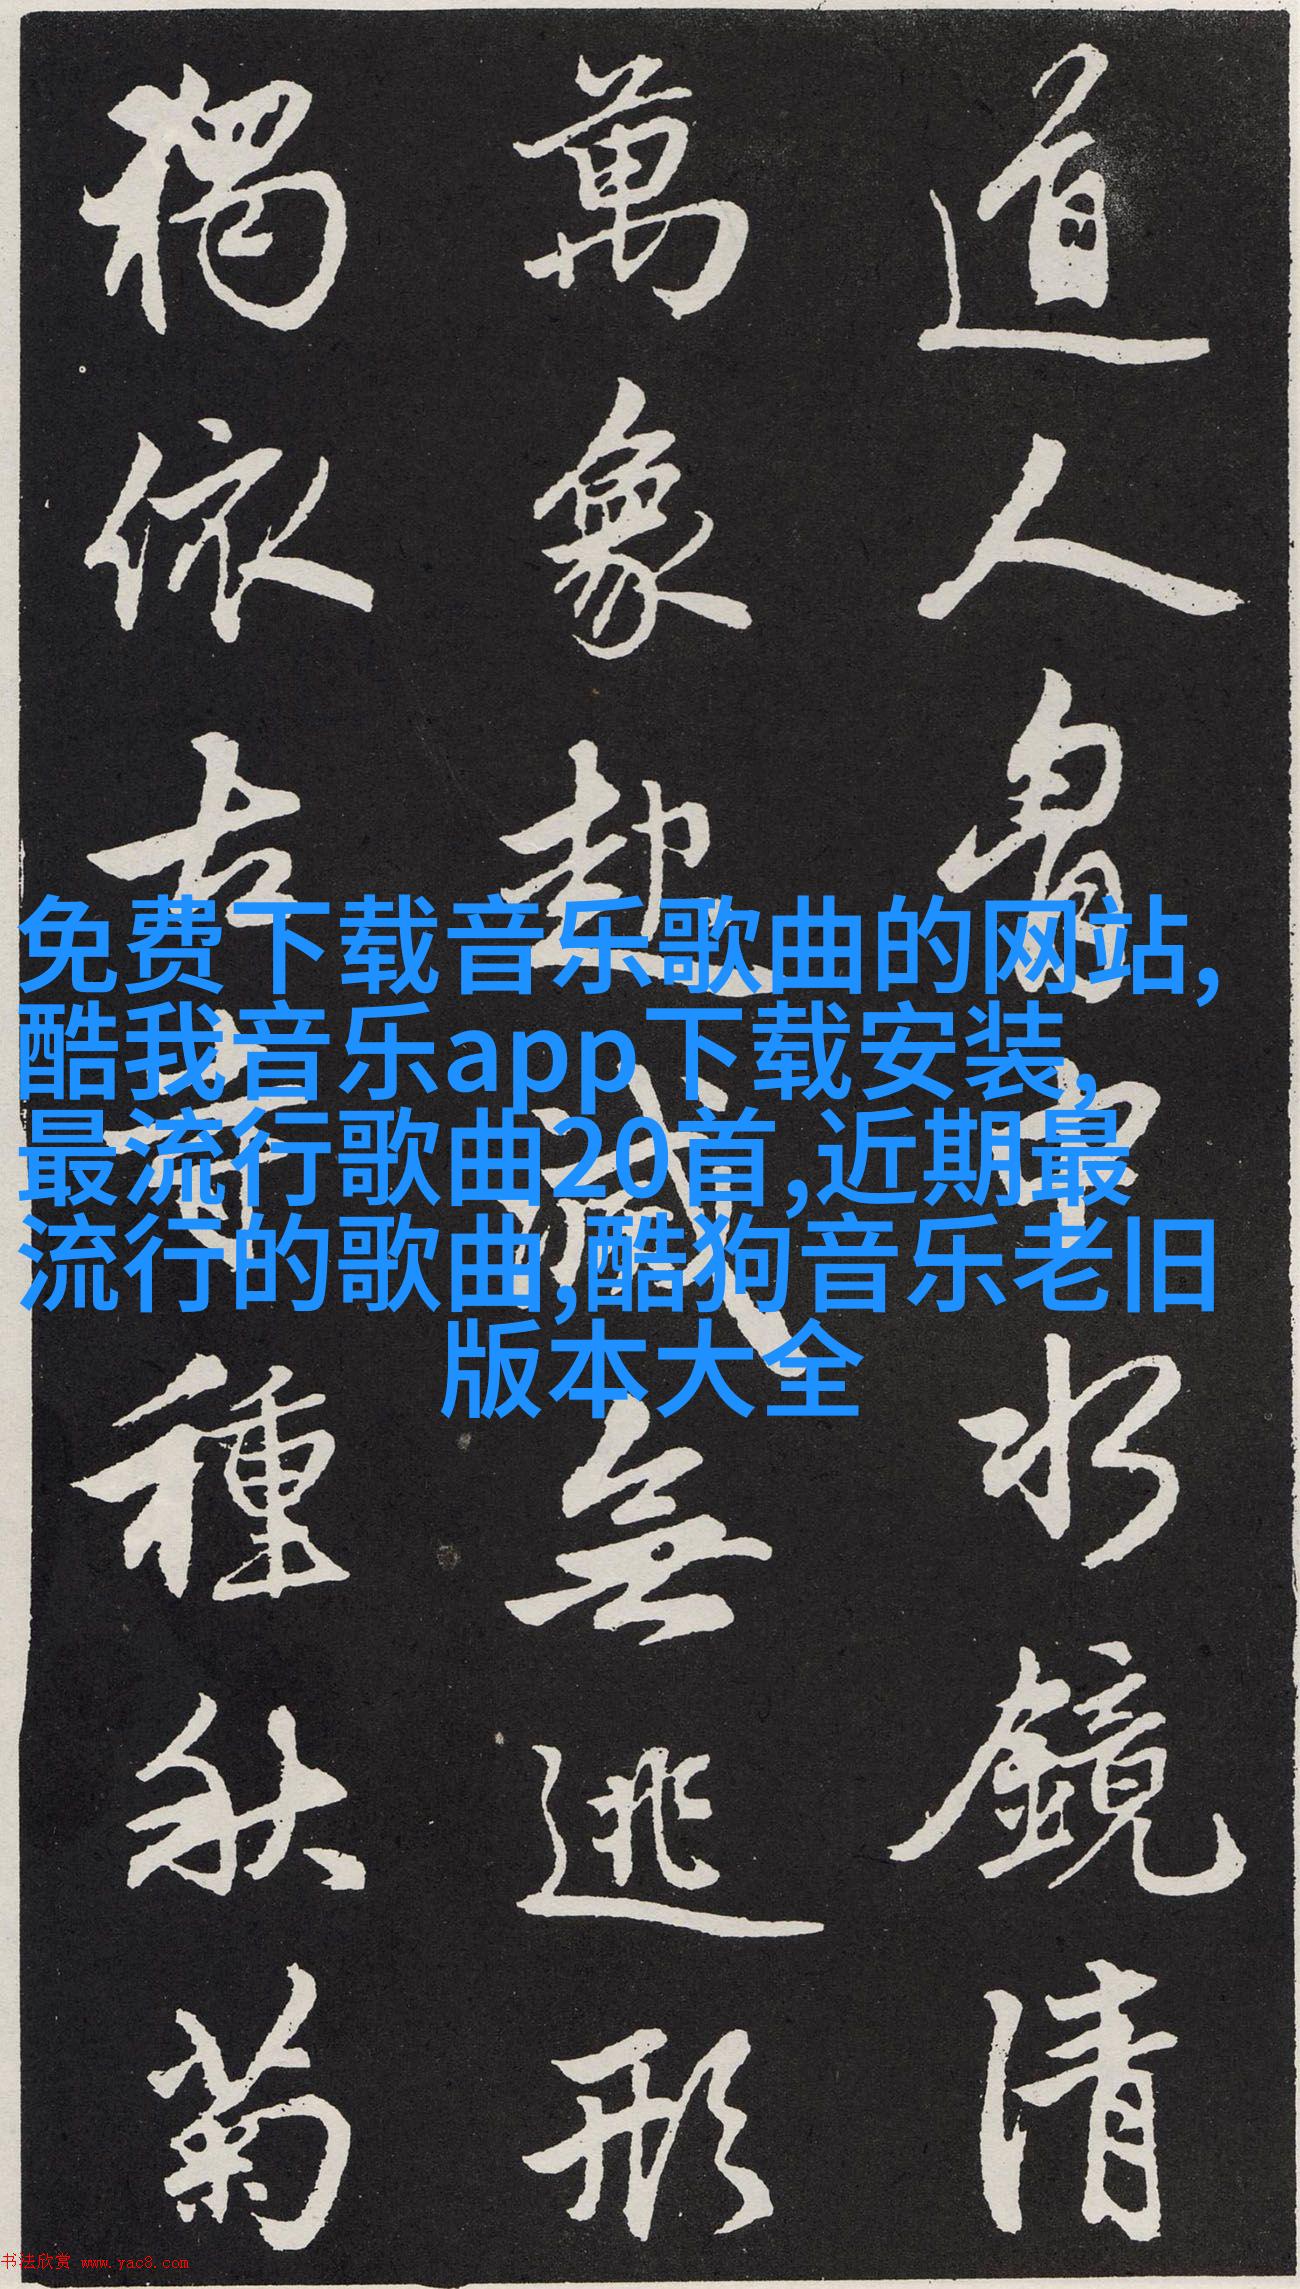 道人胷中水鏡清
萬象起滅無逃形
獨依古寺種秋菊
免费下载音乐歌曲的网站,
酷我音乐app下载安装,
最流行歌曲20首,近期最
流行的歌曲,酷狗音乐老旧
版本大全
书法欣赏 www.yac8.com